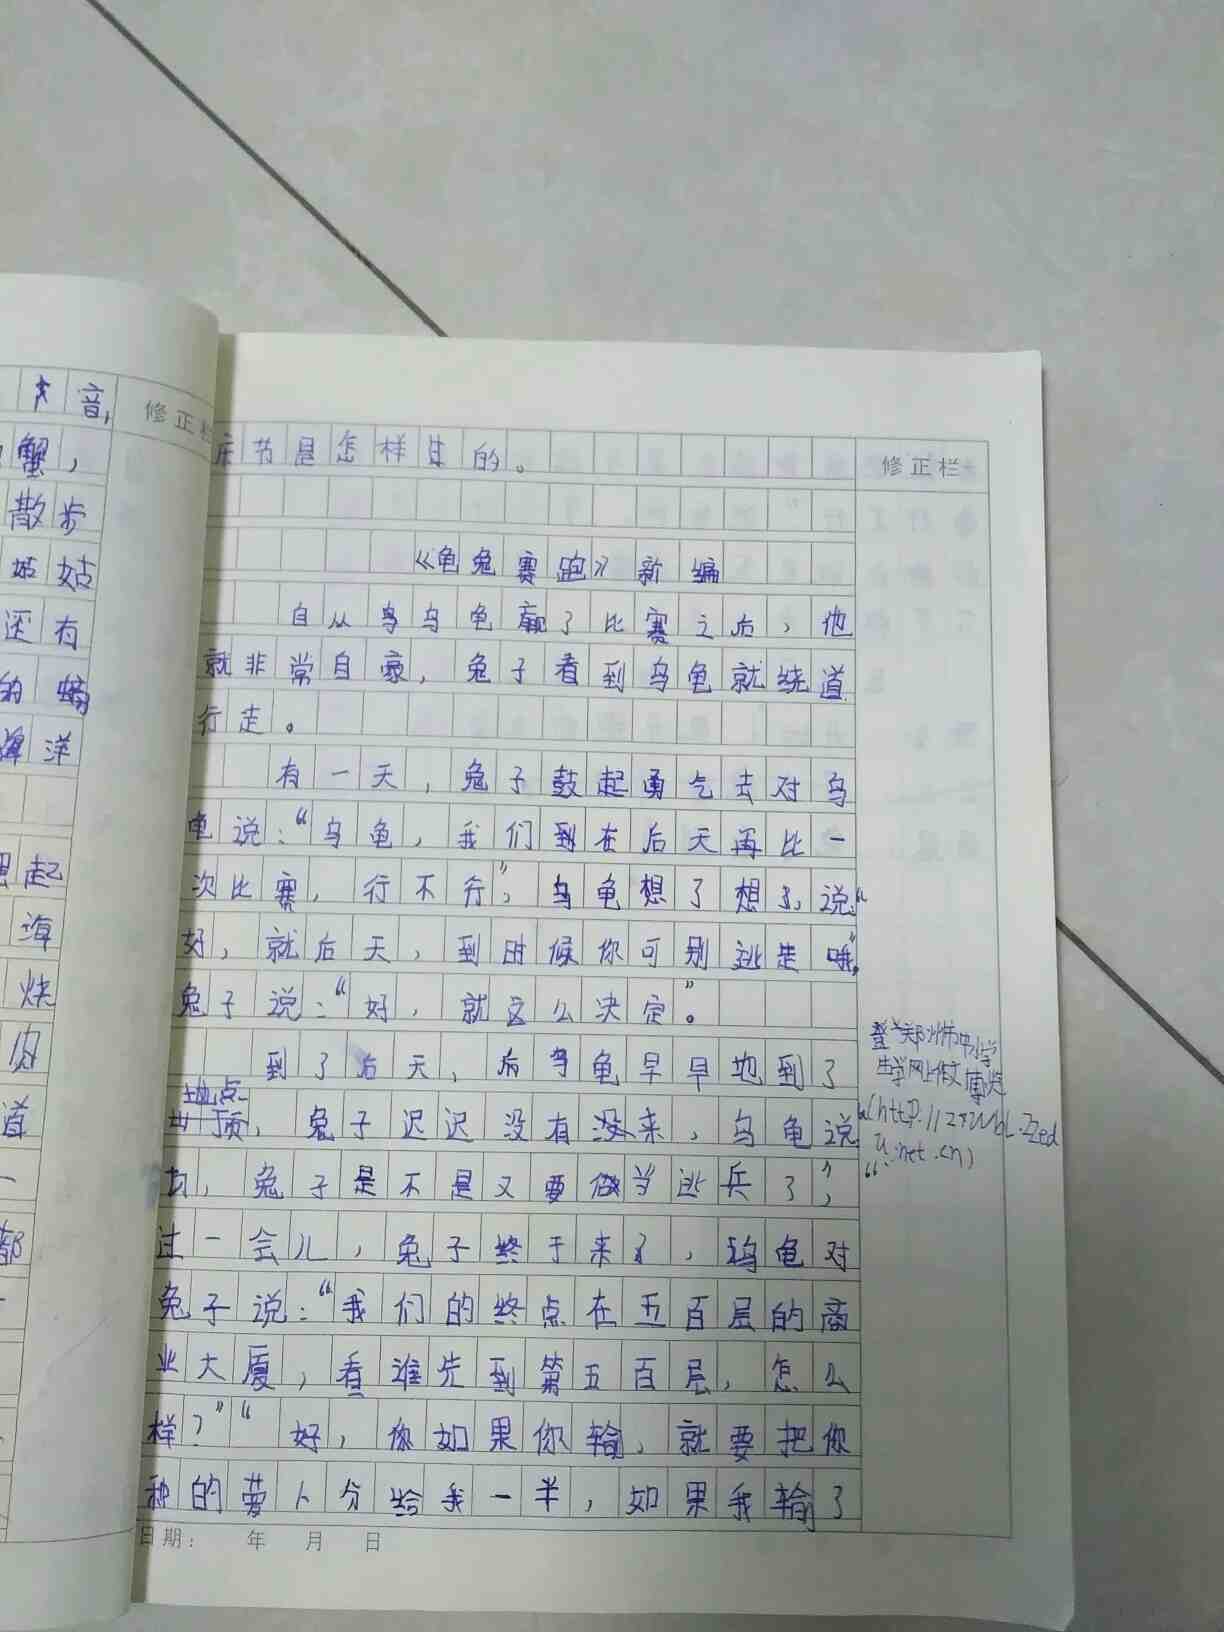 大音,
蟹,
散步
姑姑
还有
的螃
海洋
思起
海
烧
肉
道
一
都
修正栏
庆节是怎样过的。
修正栏
《龟兔赛跑》新编
自从乌乌龟赢了比赛之后,他
就非常自豪,兔子看到乌龟就绕道
行走。
有一天,兔子鼓起勇气去对乌
龟说:“乌龟,我们到在后天再比一
次比赛,行不行”,乌龟想了想了,说:“
好,就后天,到时候你可别逃走哦”,
兔子说:“好,就这么决定”。
到了后天,后乌龟早早地到了
地点
顶,兔子迟迟没有没来,乌龟说
“
,兔子是不是又要做当逃兵了”,
过一会儿,兔子终于来了,乌龟对
兔子说:“我们的终点在五百层的商
业大厦,看谁先到第五百层,怎么
样?”“好,你如果你输,就要把你
种的萝卜分给我一半,如果我输了
登录郑州市中小学
生学网上作文博览
net.cn)
日期: 年 月 日